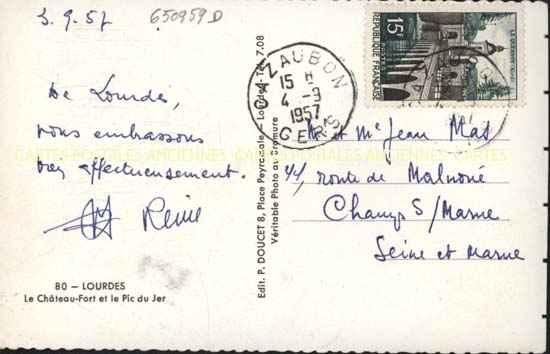 3.9.57
650959D
De Lourdes,
nous embrassons
bien affectueusement.
Reine
80 – LOURDES
Le Château-Fort et le Pic du Jer
Edit. P. DOUCET 8, Place Peyramale – Lourdes – Tél. 7.08
Véritable Photo au Bromure
CAZAUBON
15 H
4 - 9
1957
GERS
15F
REPUBLIQUE FRANÇAISE
LE QUESNOY (Nord)
POSTES
Mr et Me Jean Mas
44, route de Malnoué
Champs S/Marne
Seine et Marne
CARTES POSTALES ANCIENNES
CARTES POSTALES ANCIENNES